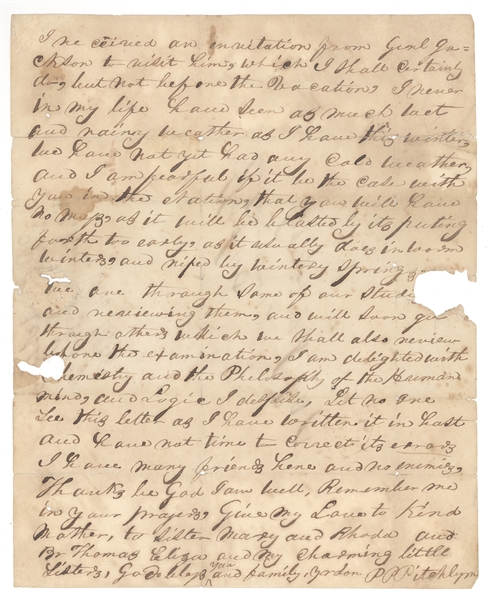 I received an invitation from Genl Ja=
ckson to visit him, which I shall certainly
do, but not before the Vacation, I never
in my life have seen as much wet
and rainy weather as I have this winter,
we have not yet had any Cold weather,
and I am fearful if it be the case with
you in the Nation, that you will have
no mass, as it will be blasted by its puting
forth too early, as it usually does in warm
winters, and niped by wintery Springs,
We are through some of our studi
and reviewing them, and will soon go
through others which we shall also review
before the examination, I am delighted with
Chemistry and the Philosophy of the Human
mind, and Logic I despise, Let no one
see this letter as I have written it in hast
and have not time to correct its errors
I have many friends here and no enemies,
Thanks be God I am well, Remember me
in your prayers, Give my Love to Kind
Mother, to Sister Mary and Rhoda and
Br Thomas Eliza and my charming little
Sisters, God bless you and family, P P Pitchlynn